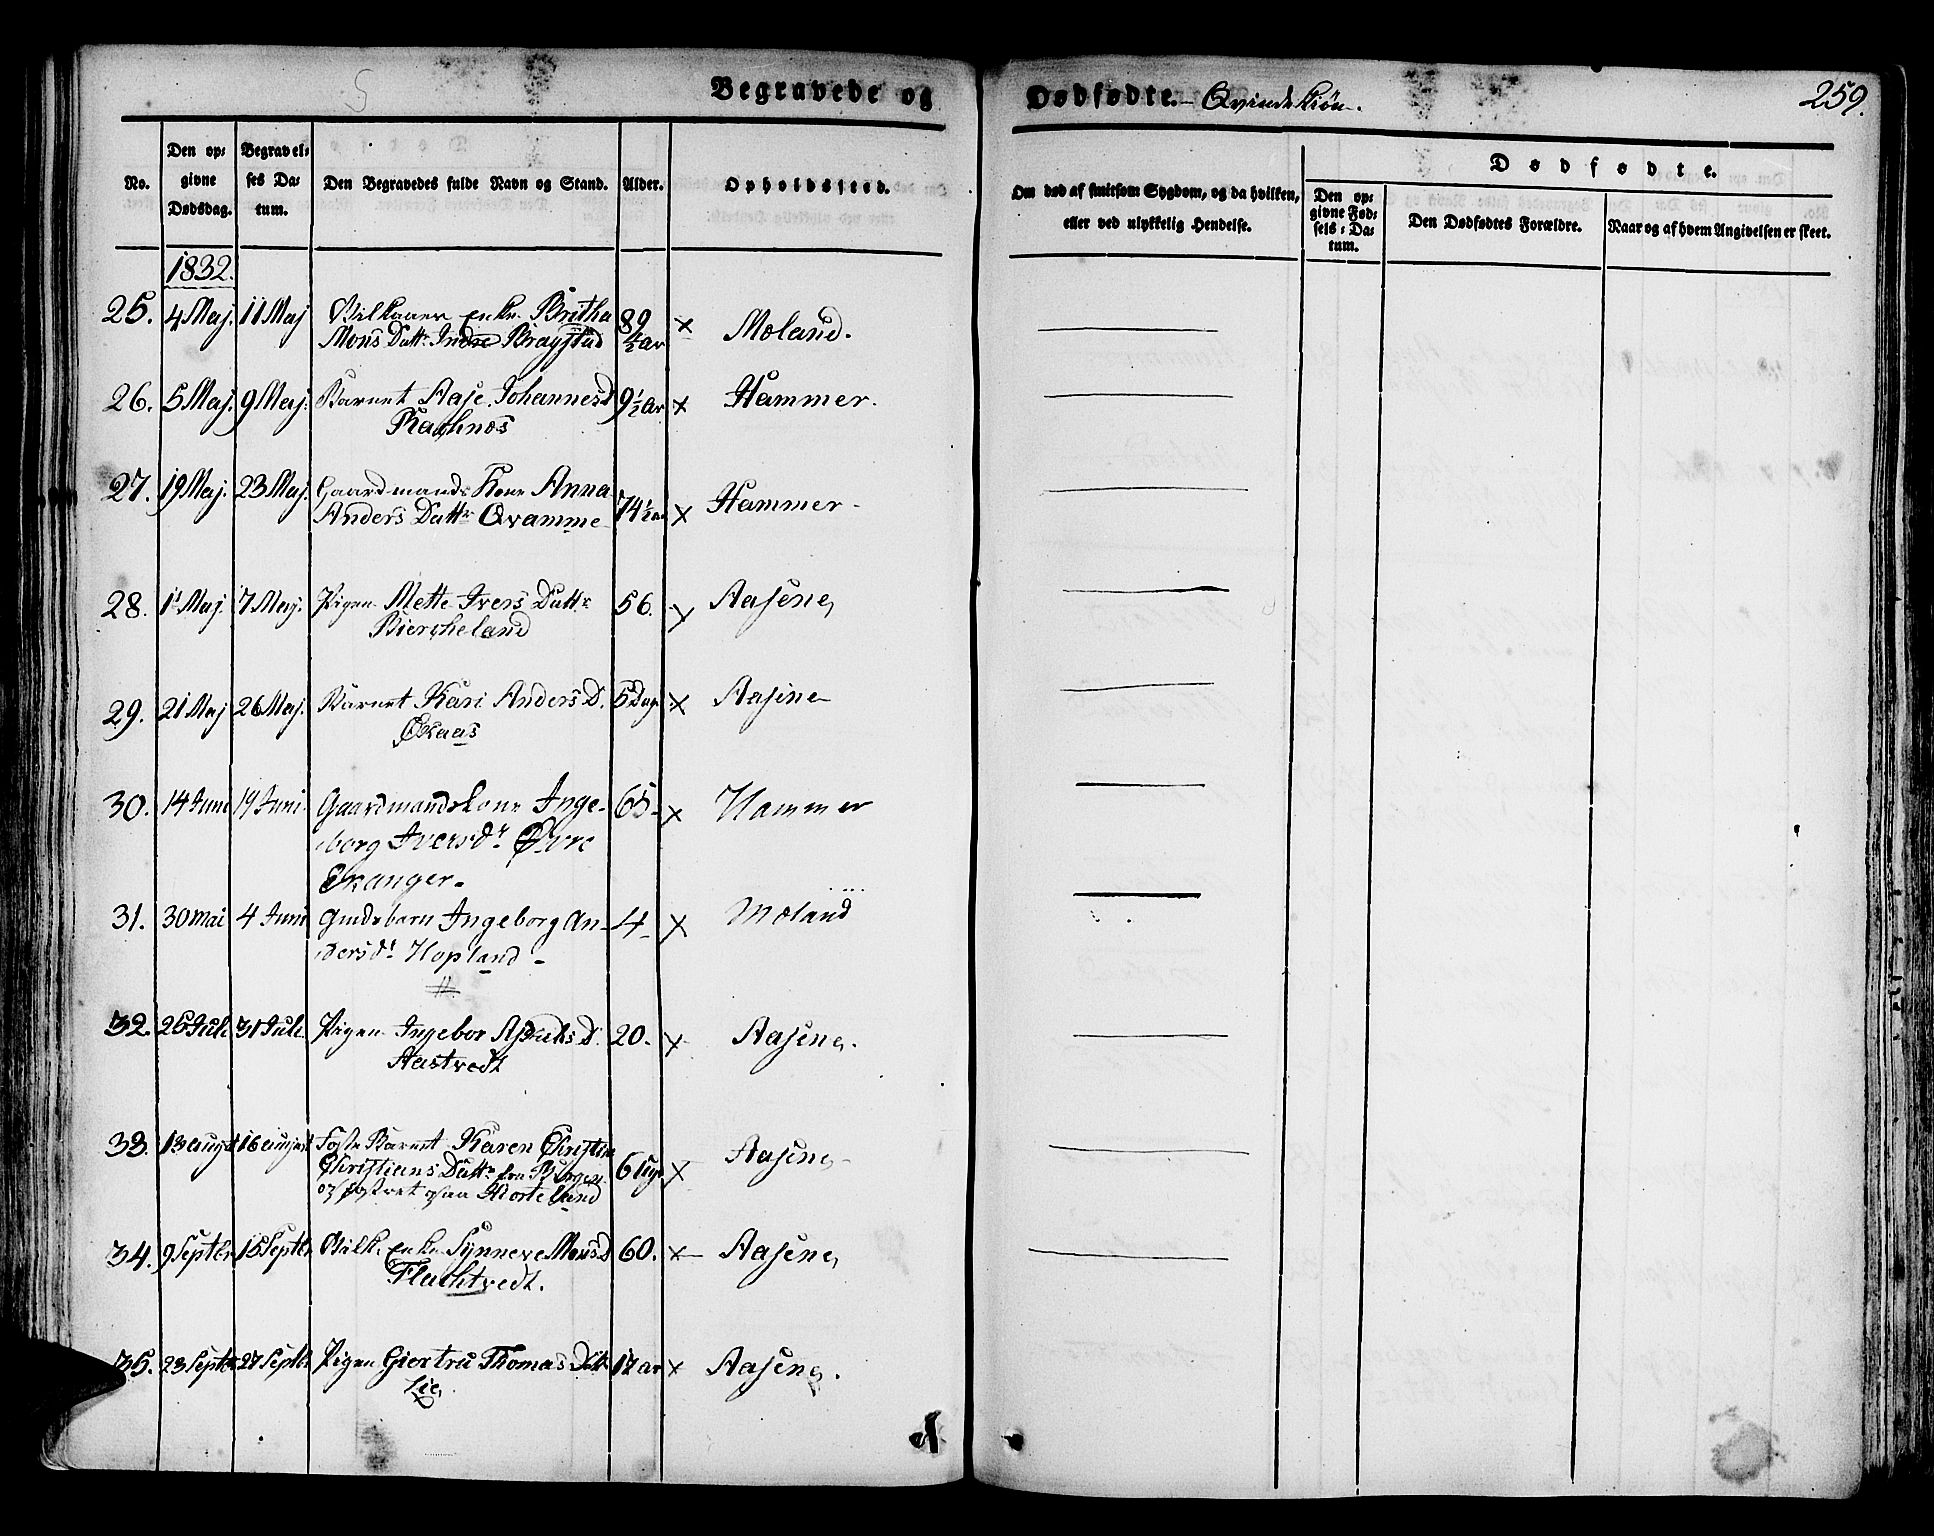 Begravede og Dødfødte. - Qvindekiøn. 259.
No. | Den opgivne Dødsdag. | Begravelses Datum. | Den Begravedes fulde Navn og Stand. | Alder. | Opholdssted. | Om død af smitsom Sygdom, og da hvilken, eller ved ulykkelig Hendelse. | Dødfødte. | Den opgivne Fødsels-Datum. | Den Dødfødtes Forældre. | Naar og af hvem Angivelsen er skeet.
1832.
25. 4 Maj. 11 Maj Vilkaars enke Britha 89
Mons Dattr. Indre Braystad 1/2 ar × Moland.
26. 5 Maj. 9 Maj. Barnet Aase Johannesd 9 1/2 ar × Hammer.
Kachnos
27. 19 Maj. 23 Maj. Gaardmands Kone Anna
Anders Dattr. Qvamme 74 1/2 a × Hammer -
28. 1 Maj. 7 Maj. Pigen Mette Ivers Dattr. 56. × Aasene
Biercheland
29. 21 Maj 26 Maj. Barnet Kari Anders D. 5 Dage × Aasene
Skaas
30. 14 Juni 19 Juni. Gaardmandskone Inge- 65- × Hammer
borg Iversdr. Øvre
Skanger.
31. 30 mai 4 Juni Ingeborg An- 4- × Moland
dersdr. Hopland -
32. 25 Juli 31 Juli. Pigen Ingebor D. 20. × Aasene.
Aastvedt
33. 13 august 16 august Foste Barnet Karen Christin
Christians Dattr. fra Bergen 6 Uger × Aasene -
og fostret paa Morteland
34. 9 Septbr 15 Septbr. Vilk. enke Synneve Monsd 60. × Aasene
Flachtvedt.
35. 23 Septbr 27 Septbr. Pigen Giertru Thomas Datt 17 ar × Aasene.
Lie